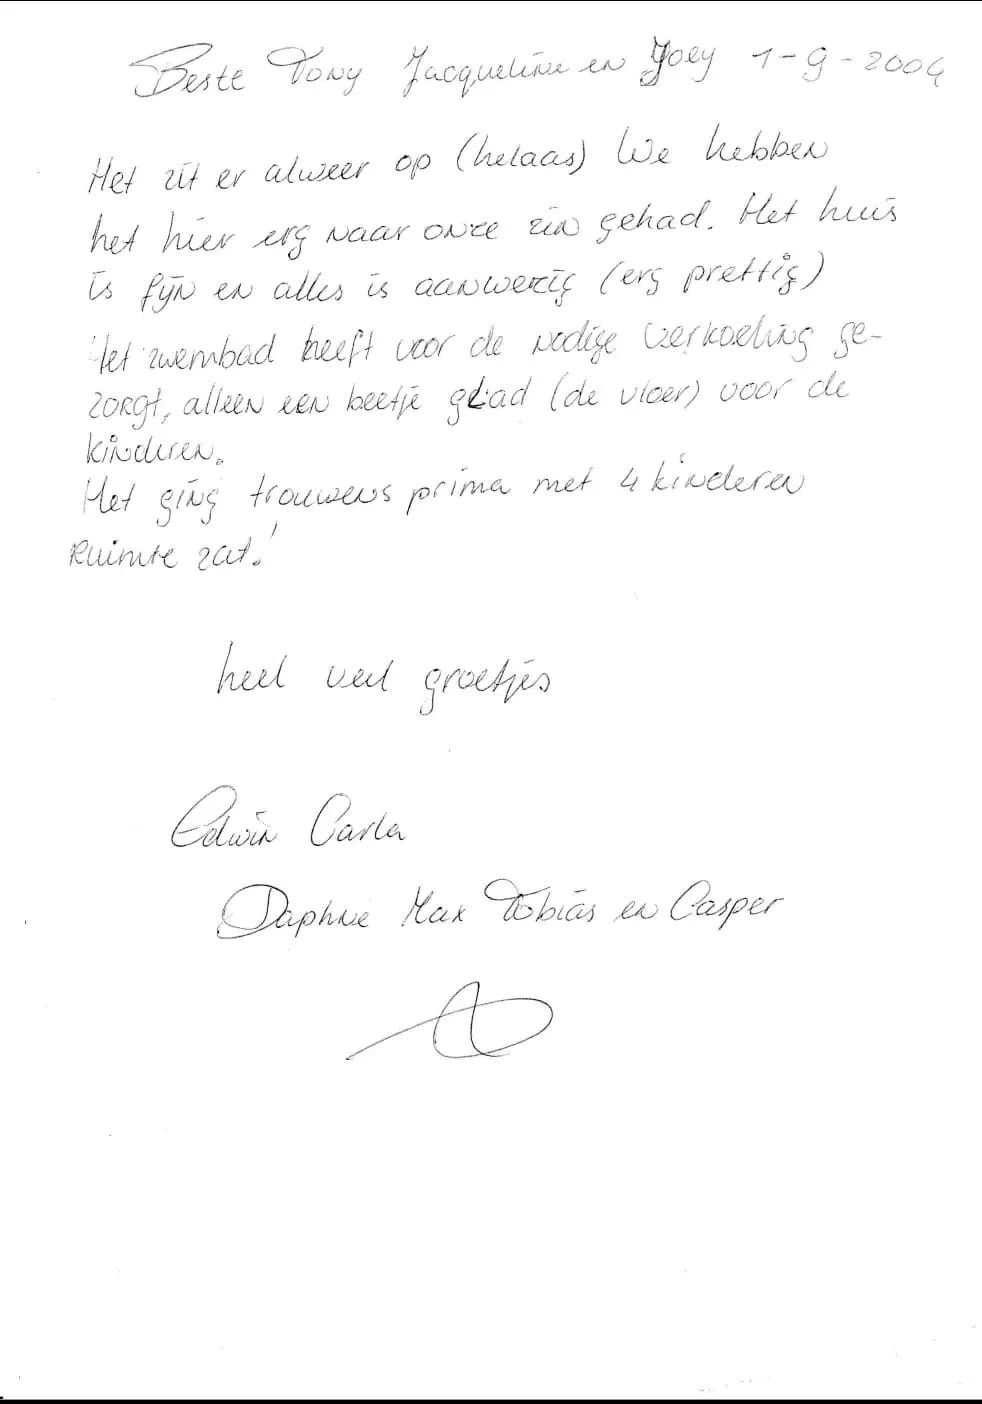 Beste Tony Jacqueline en Joey 1-9-2004
Het zit er alweer op (helaas) We hebben
het hier erg naar onze zin gehad. Het huis
is fijn en alles is aanwezig (erg prettig)
Het zwembad heeft voor de nodige verkoeling ge-
zorgt, alleen een beetje glad (de vloer) voor de
kinderen.
Het ging trouwens prima met 4 kinderen
Ruimte zat!
heel veel groetjes
Edwin Carla
Daphne Max Tobias en Casper